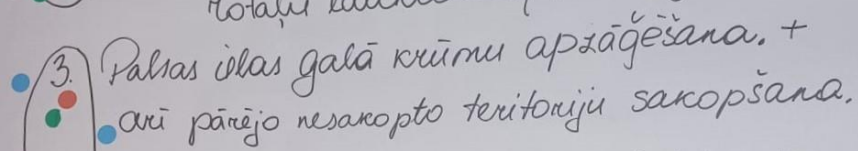 3. Palsas ielas galā krūmu apzāģēšana. +
arī pārējo nesakopto teritoriju sakopšana.